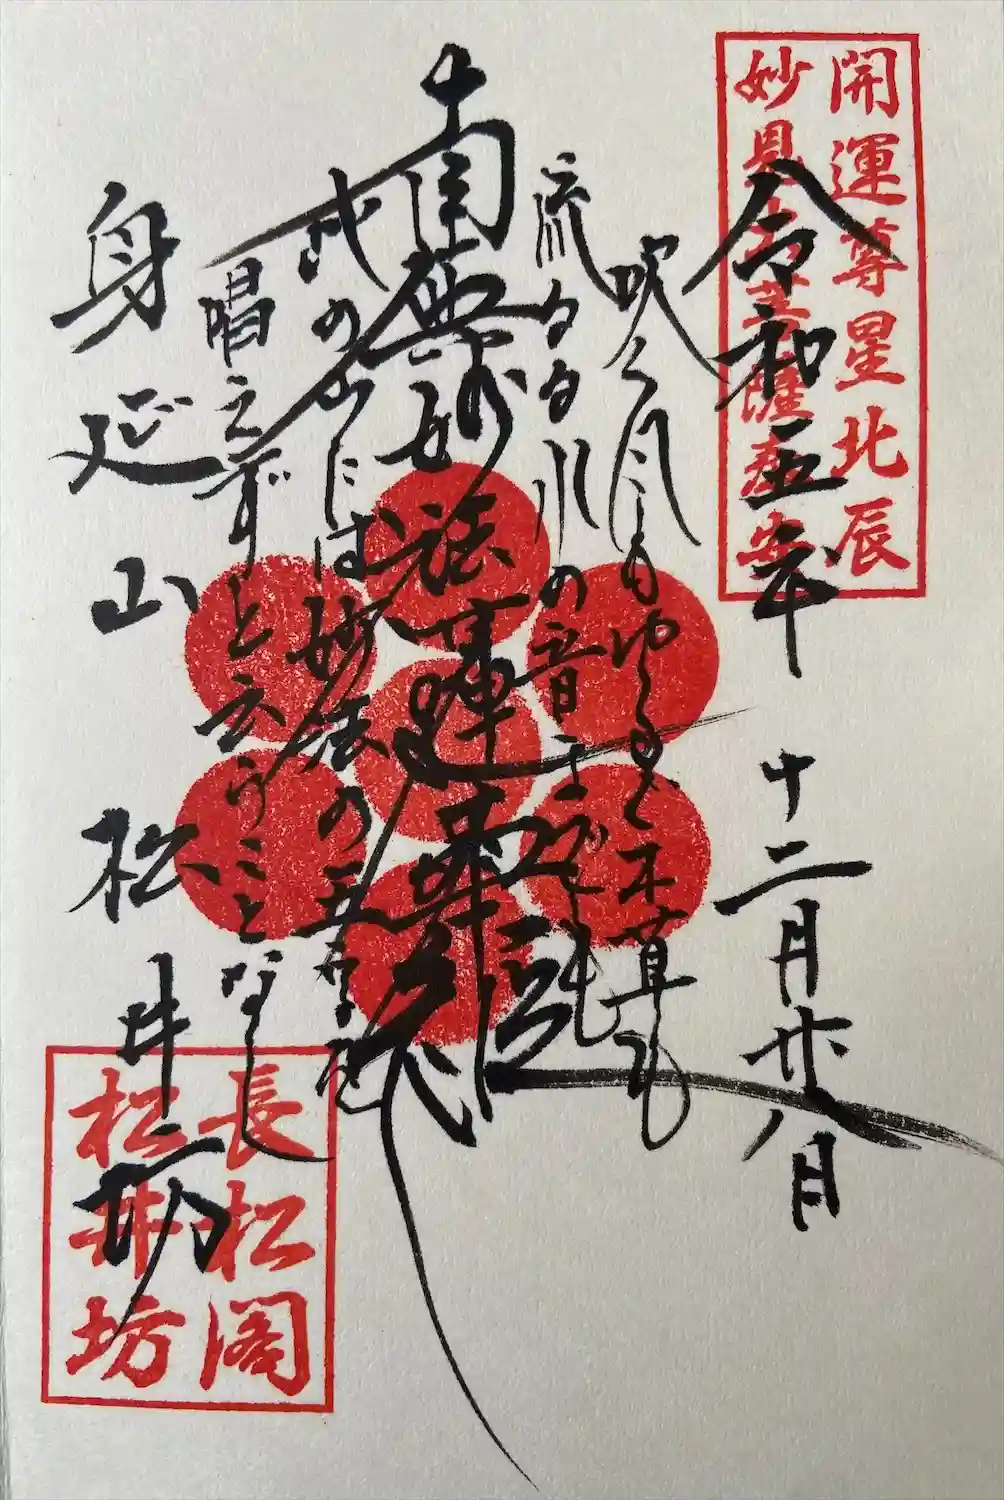 開運尊星北辰
妙見大菩薩奉安
令和五年 十二月廿八日
吹く風もゆるぐ木草も
流るる川の音までも
南無妙法蓮華経
此の山には妙法の五字を
唱えずと云うことなし
身延山 松井坊
長松閣
松井坊